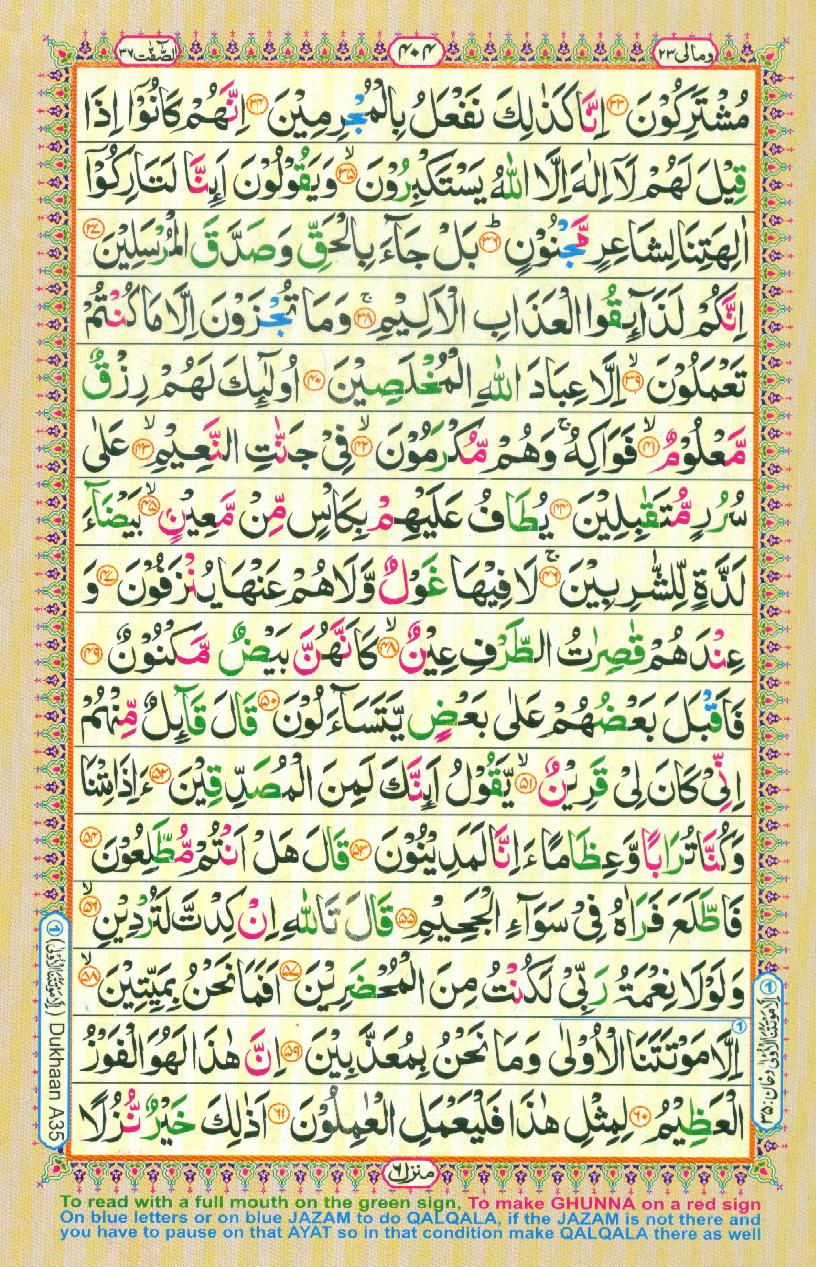 الصّٰٓفّٰت ۳۷
۴۰۴
ومالی ۲۳
مُشْتَرِكُوْنَ ۝۳۳ اِنَّا كَذٰلِكَ نَفْعَلُ بِالْمُجْرِمِيْنَ ۝۳۴ اِنَّهُمْ كَانُوْۤا اِذَا
قِيْلَ لَهُمْ لَاۤ اِلٰهَ اِلَّا اللّٰهُ يَسْتَكْبِرُوْنَ ۝۳۵ۙ وَيَقُوْلُوْنَ اَئِنَّا لَتَارِكُوْۤا
اٰلِهَتِنَا لِشَاعِرٍ مَّجْنُوْنٍ ۝۳۶ؕ بَلْ جَآءَ بِالْحَقِّ وَصَدَّقَ الْمُرْسَلِيْنَ ۝۳۷
اِنَّكُمْ لَذَآئِقُوا الْعَذَابِ الْاَلِيْمِ ۝۳۸ۚ وَمَا تُجْزَوْنَ اِلَّا مَا كُنْتُمْ
تَعْمَلُوْنَ ۝۳۹ۙ اِلَّا عِبَادَ اللّٰهِ الْمُخْلَصِيْنَ ۝۴۰ اُولٰٓئِكَ لَهُمْ رِزْقٌ
مَّعْلُوْمٌ ۝۴۱ۙ فَوَاكِهُ ۚ وَهُمْ مُّكْرَمُوْنَ ۝۴۲ۙ فِيْ جَنّٰتِ النَّعِيْمِ ۝۴۳ۙ عَلٰى
سُرُرٍ مُّتَقٰبِلِيْنَ ۝۴۴ يُطَافُ عَلَيْهِمْ بِكَاْسٍ مِّنْ مَّعِيْنٍۭ ۝۴۵ۙ بَيْضَآءَ
لَذَّةٍ لِّلشّٰرِبِيْنَ ۝۴۶ۚ لَا فِيْهَا غَوْلٌ وَّلَا هُمْ عَنْهَا يُنْزَفُوْنَ ۝۴۷ وَ
عِنْدَهُمْ قٰصِرٰتُ الطَّرْفِ عِيْنٌ ۝۴۸ۙ كَاَنَّهُنَّ بَيْضٌ مَّكْنُوْنٌ ۝۴۹
فَاَقْبَلَ بَعْضُهُمْ عَلٰى بَعْضٍ يَّتَسَآءَلُوْنَ ۝۵۰ قَالَ قَآئِلٌ مِّنْهُمْ
اِنِّيْ كَانَ لِيْ قَرِيْنٌ ۝۵۱ۙ يَّقُوْلُ اَئِنَّكَ لَمِنَ الْمُصَدِّقِيْنَ ۝۵۲ ءَاِذَا مِتْنَا
وَكُنَّا تُرَابًا وَّعِظَامًا ءَاِنَّا لَمَدِيْنُوْنَ ۝۵۳ قَالَ هَلْ اَنْتُمْ مُّطَّلِعُوْنَ ۝۵۴
فَاطَّلَعَ فَرَاٰهُ فِيْ سَوَآءِ الْجَحِيْمِ ۝۵۵ قَالَ تَاللّٰهِ اِنْ كِدْتَّ لَتُرْدِيْنِ ۝۵۶ۙ
وَلَوْلَا نِعْمَةُ رَبِّيْ لَكُنْتُ مِنَ الْمُحْضَرِيْنَ ۝۵۷ اَفَمَا نَحْنُ بِمَيِّتِيْنَ ۝۵۸ۙ
اِلَّا مَوْتَتَنَا الْاُوْلٰى وَمَا نَحْنُ بِمُعَذَّبِيْنَ ۝۵۹ اِنَّ هٰذَا لَهُوَ الْفَوْزُ
الْعَظِيْمُ ۝۶۰ لِمِثْلِ هٰذَا فَلْيَعْمَلِ الْعٰمِلُوْنَ ۝۶۱ اَذٰلِكَ خَيْرٌ نُّزُلًا
① (اِلَّا مَوْتَتُنَا الْاُوْلٰى) Dukhaan A35
① اِلَّا مَوْتَتُنَا الْاُوْلٰى دخان: ۳۵
منزل ۶
To read with a full mouth on the green sign, To make GHUNNA on a red sign
On blue letters or on blue JAZAM to do QALQALA, if the JAZAM is not there and
you have to pause on that AYAT so in that condition make QALQALA there as well